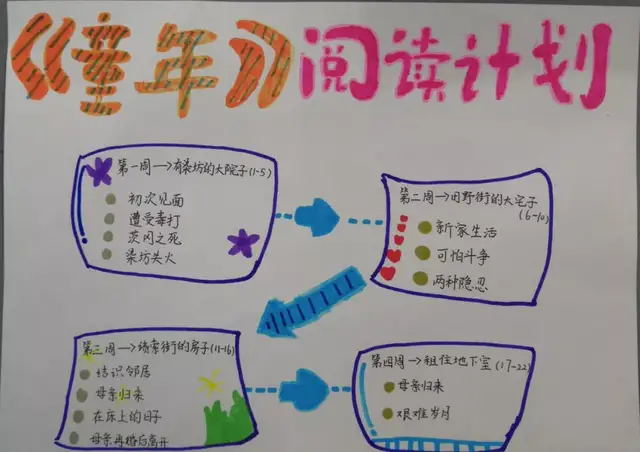 《童年》阅读计划
第一周→有染坊的大院子(1-5)
初次见面
遭受毒打
茨冈之死
染坊失火
第二周→田野街的大宅子
(6-10)
新家生活
可怕斗争
两种隐忍
第三周→绳索街的房子(11-16)
结识邻居
母亲归来
在床上的日子
母亲再婚后离开
第四周→租住地下室(17-22)
母亲归来
艰难岁月